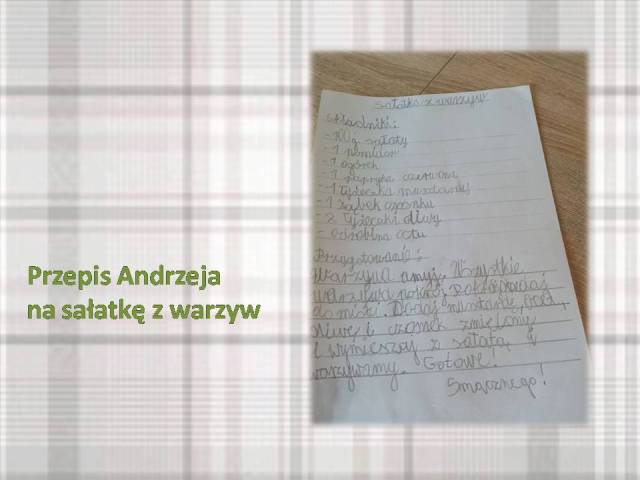 Przepis Andrzeja
na sałatkę z warzyw
sałatka z warzyw
składniki:
- 1 pomidor
- 1 ogórek
- 1 papryka czerwona
- 1 łyżeczka musztardy
- 1 ząbek czosnku
- 2 łyżeczki oliwy
- odrobina octu
Przygotowanie:
Warzywa umyj. Wszystkie
warzywa pokrój
do miski. Dodaj musztardę, ocet,
oliwę i czosnek zmielony
i wymieszaj z sałatą i
warzywamy. Gotowe!
Smacznego!